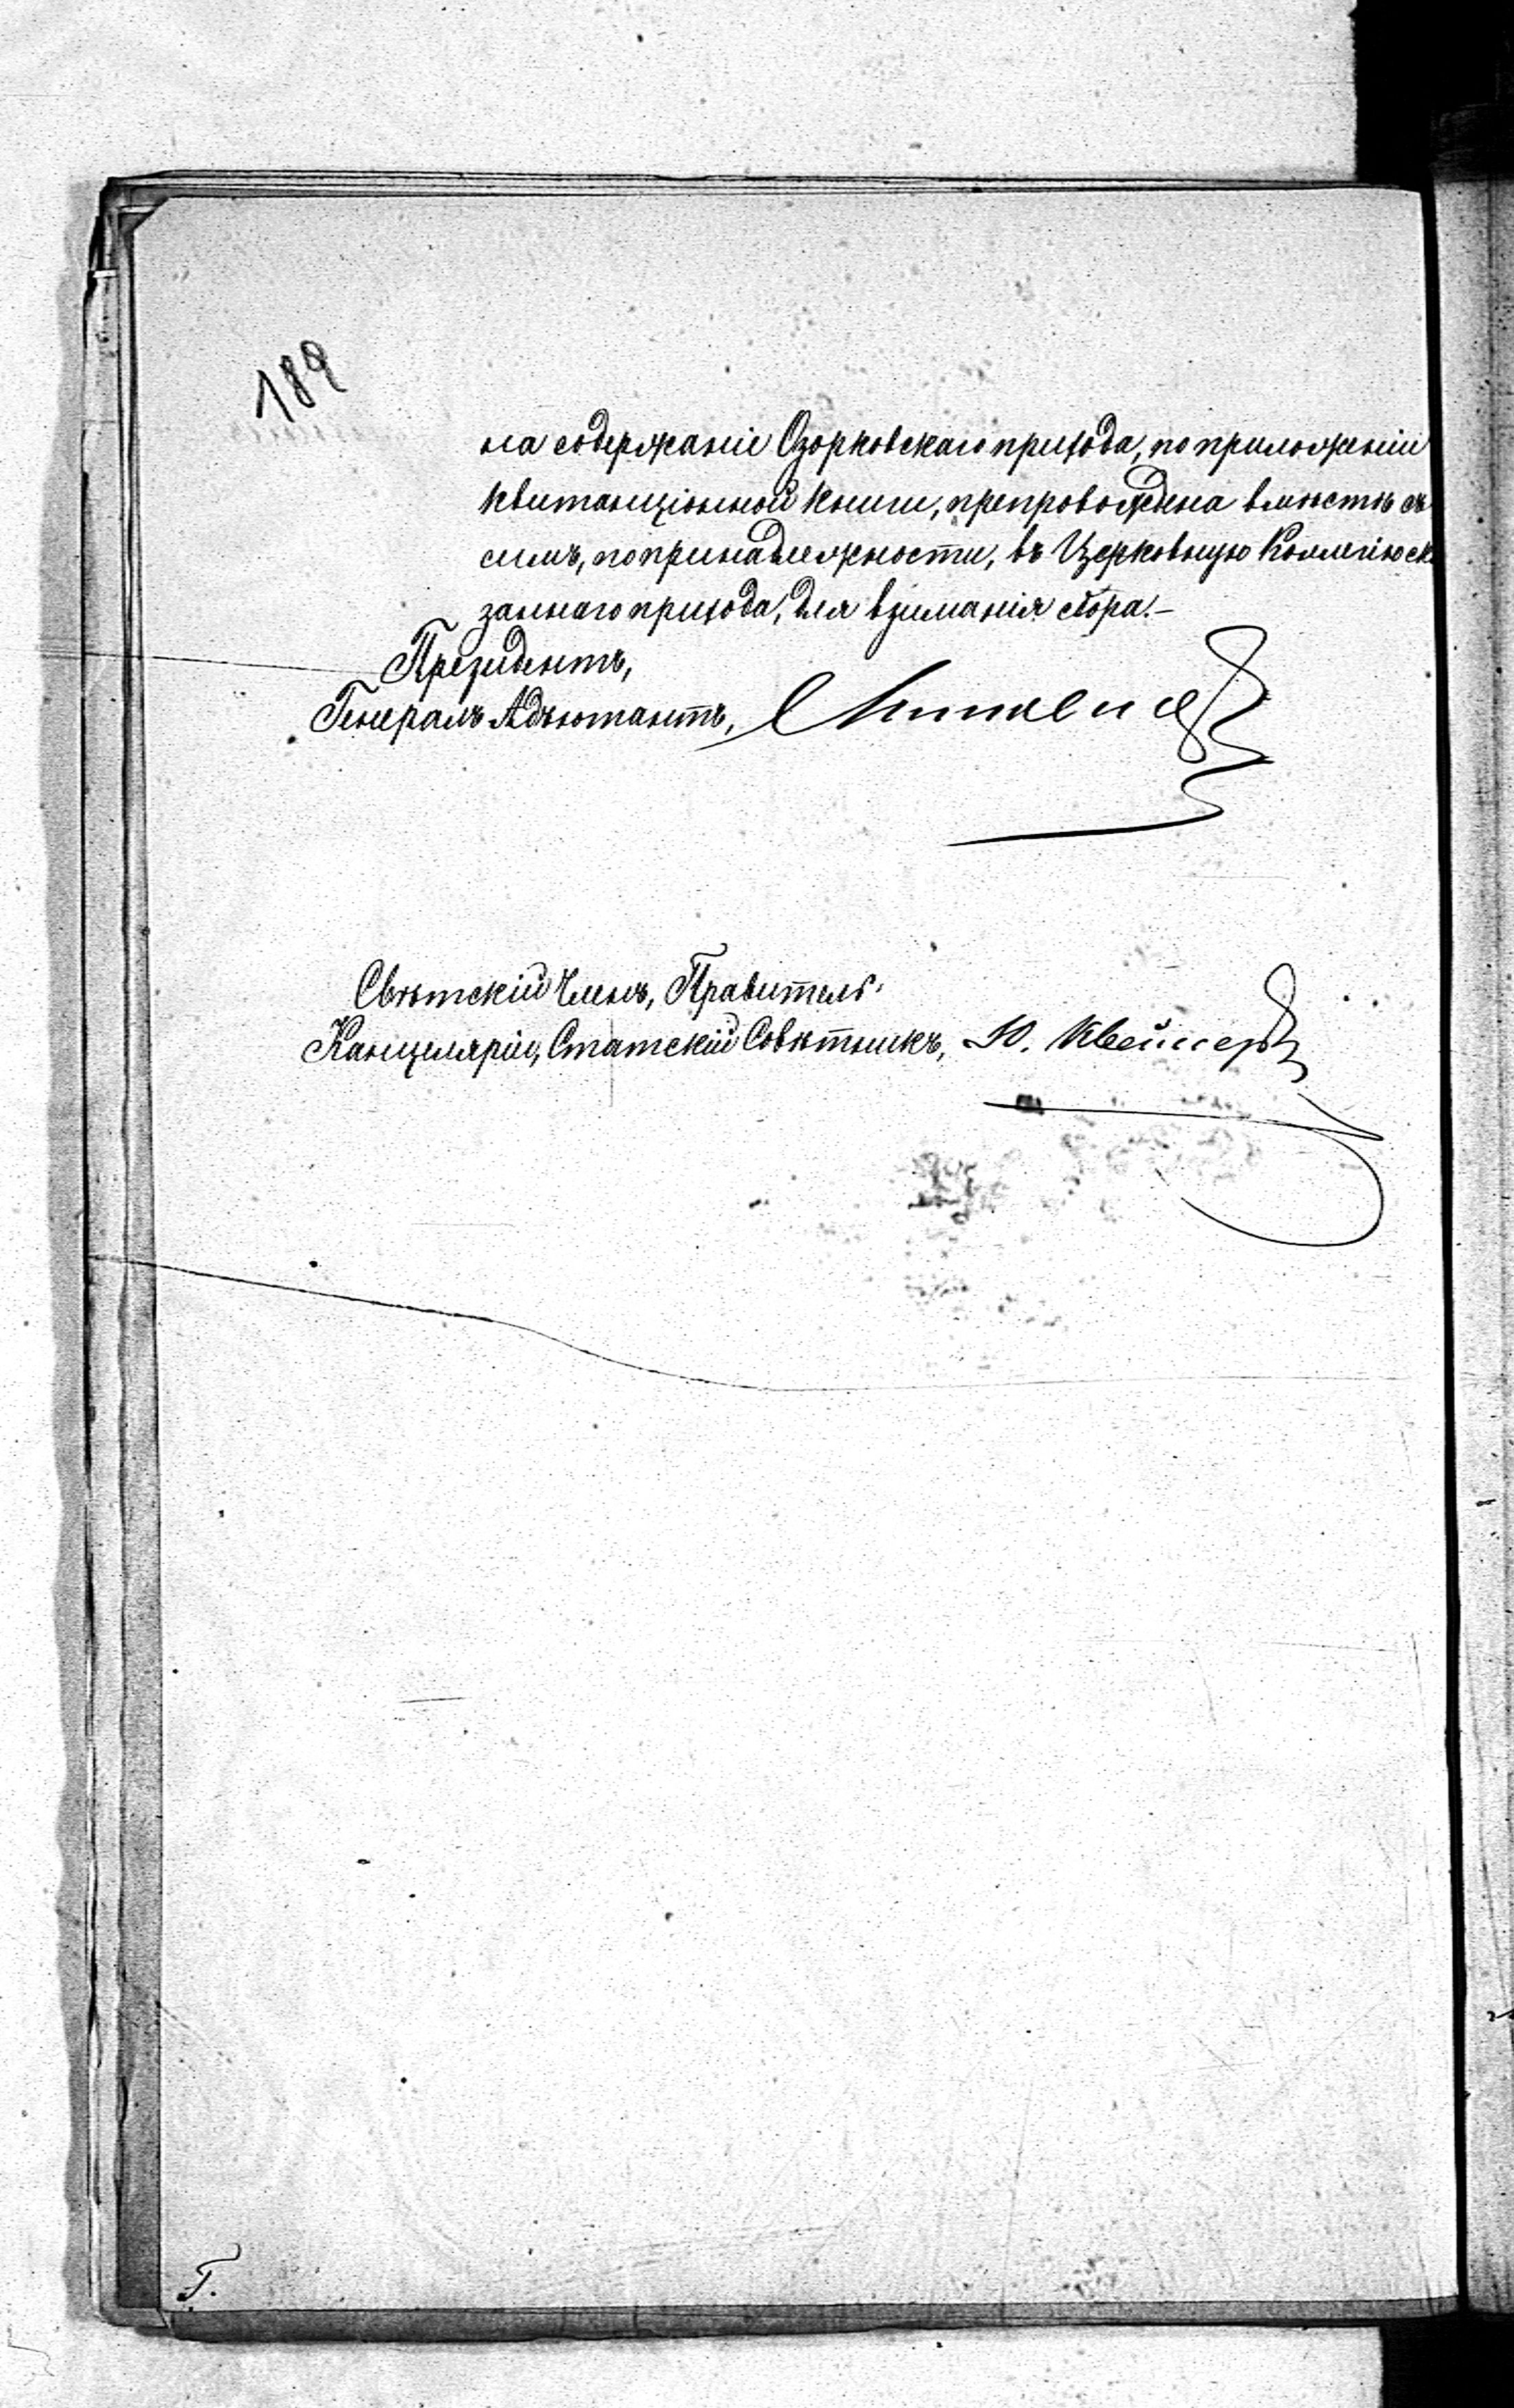 189
на содержаніе Озорковскаго прихода, по приложеніи
квитанціонной книги, препровождена вмѣстѣ съ
симъ, по принадлежности, въ Церковную Коллегію ска
заннаго прихода, для взиманія сбора.—
Президентъ,
Генералъ Адъютантъ,
Свѣтскій Членъ, Правитель
Канцеляріи, Статскій Совѣтникъ, Ю.
Г.